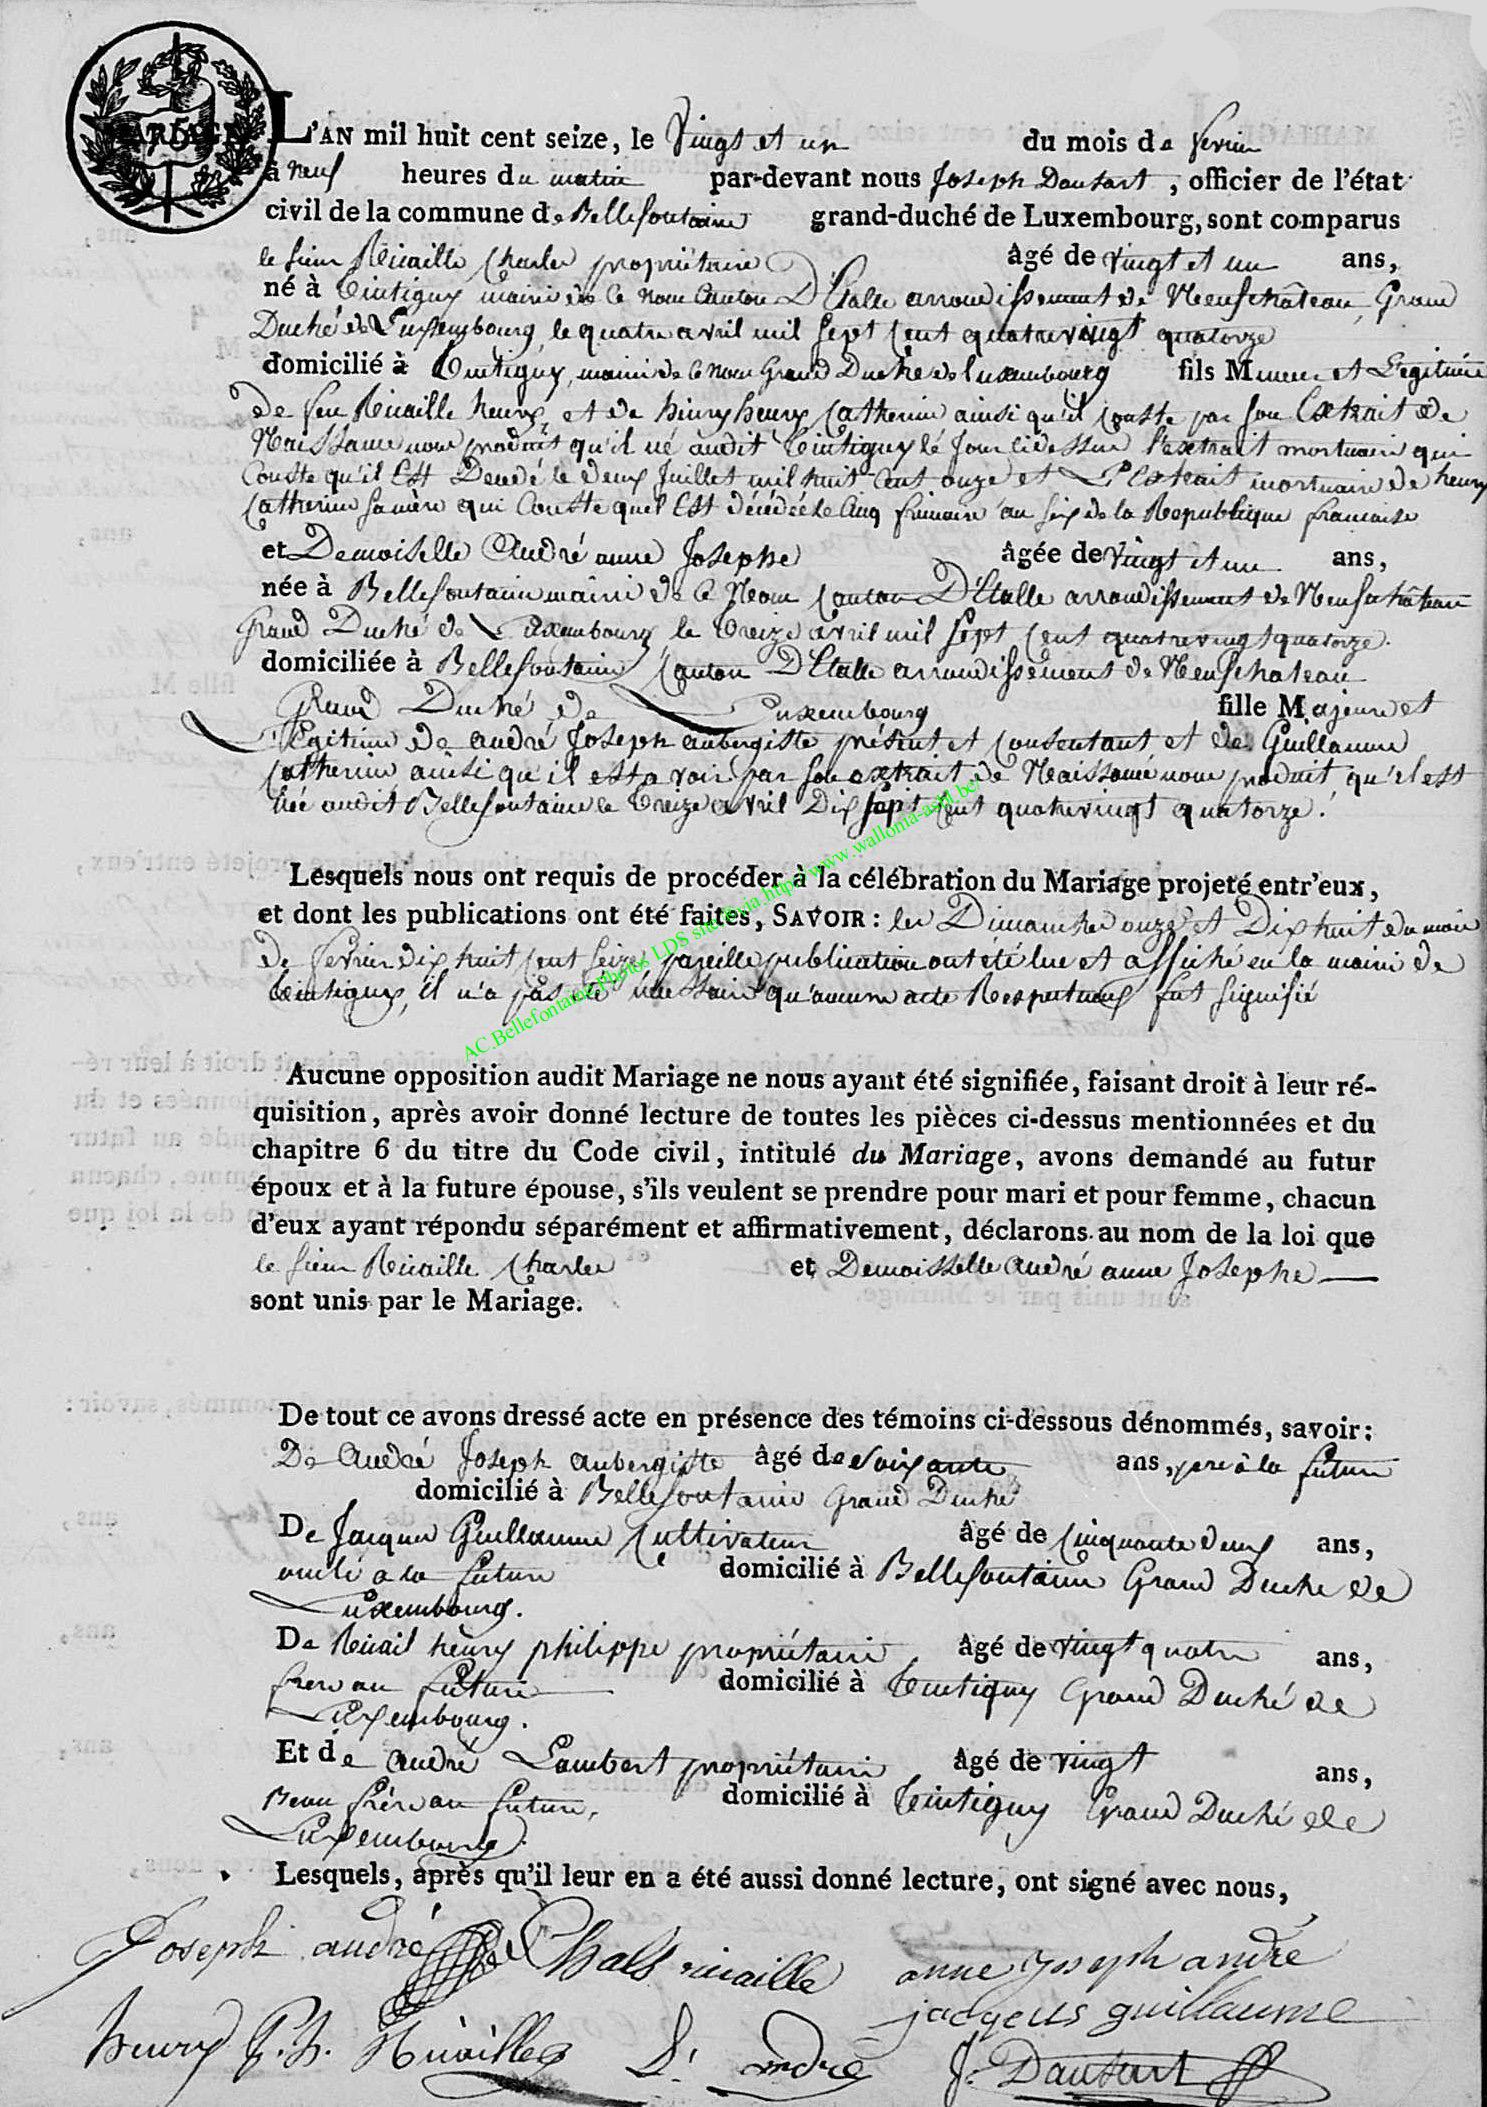 MARIAGE
L'AN mil huit cent seize, le Vingt et un du mois de fevrier
à neuf heures du matin par-devant nous Joseph Dausart, officier de l'état
civil de la commune de Bellefontaine grand-duché de Luxembourg, sont comparus
le sieur Ricaille Charles propriétaire âgé de vingt et un ans,
né à Tintigny mairie de ce nom Canton D'Etalle arrondissement de Neufchâteau, Grand
Duché de Luxembourg, le quatre avril mil sept cent quatrevingt quatorze
domicilié à Tintigny, mairie de ce nom Grand Duché de Luxembourg fils Mineur et Legitime
De feu Ricaille henry et de henry Catherine ainsi qu'il conste par son Extrait de
Naissance nous produit qu'il né audit Tintigny le Jour cidessus l'extrait mortuaire qui
Conste qu'il Est Decedé le deux Juillet mil huit Cent onze et L'Extrait mortuaire de henry
Catherine sa mère qui Conste quel Est décédée le Cinq frimaire an six de la Republique francaise
et Demoiselle André anne Josephe âgée de vingt et un ans,
née à Bellefontaine mairie de ce Nom Canton D'Etalle arrondissement de Neufchâteau
Grand Duché de Luxembourg le treize avril mil sept Cent quatrevingt quatorze.
domiciliée à Bellefontaine Canton D'Etalle arrondissement de Neufchateau
Grand Duché de Luxembourg fille Majeure et
Legitime de andré Joseph aubergiste présent et Consentant et de Guillaume
Catherine ainsi qu'il est a voir par son extrait de Naissance nous produit qu'il est
née audit Bellefontaine le treize avril Dix sept Cent quatrevingt quatorze.
Lesquels nous ont requis de procéder à la célébration du Mariage projeté entr'eux,
et dont les publications ont été faites, SAVOIR : les Dimanches onze et Dix huit du mois
de fevrier dix huit Cent seize, pareille publication ont été lue et affiché en la mairie de
tintigny, il n'a pas été nécessaire qu'aucun acte Respectueux fut signifié
AC.Bellefontaine.Photos LDS site@via http://www.wallonia-asbl.be/
Aucune opposition audit Mariage ne nous ayant été signifiée, faisant droit à leur ré-
quisition, après avoir donné lecture de toutes les pièces ci-dessus mentionnées et du
chapitre 6 du titre du Code civil, intitulé du Mariage, avons demandé au futur
époux et à la future épouse, s'ils veulent se prendre pour mari et pour femme, chacun
d'eux ayant répondu séparément et affirmativement, déclarons au nom de la loi que
le sieur Ricaille Charles et Demoisselle André anne Josephe
sont unis par le Mariage.
De tout ce avons dressé acte en présence des témoins ci-dessous dénommés, savoir:
De André Joseph aubergiste âgé de soixante ans, pere à la future
domicilié à Bellefontaine Grand Duché
De Jacques Guillaume Cultivateur âgé de Cinquante deux ans,
oncle a la future domicilié à Bellefontaine Grand Duché de
Luxembourg.
De Ricail henry philippe propriétaire âgé de vingt quatre ans,
frere au future domicilié à Tintigny Grand Duché de
Luxembourg.
Et de André Lambert propriétaire âgé de vingt ans,
Beau frére au future, domicilié à Tintigny Grand Duché de
Luxembourg.
Lesquels, après qu'il leur en a été aussi donné lecture, ont signé avec nous,
Joseph andré Chals ricaille anne joseph andré
jacqeus guillaume
henry P. h. Ricailles L. andre J. Dausart